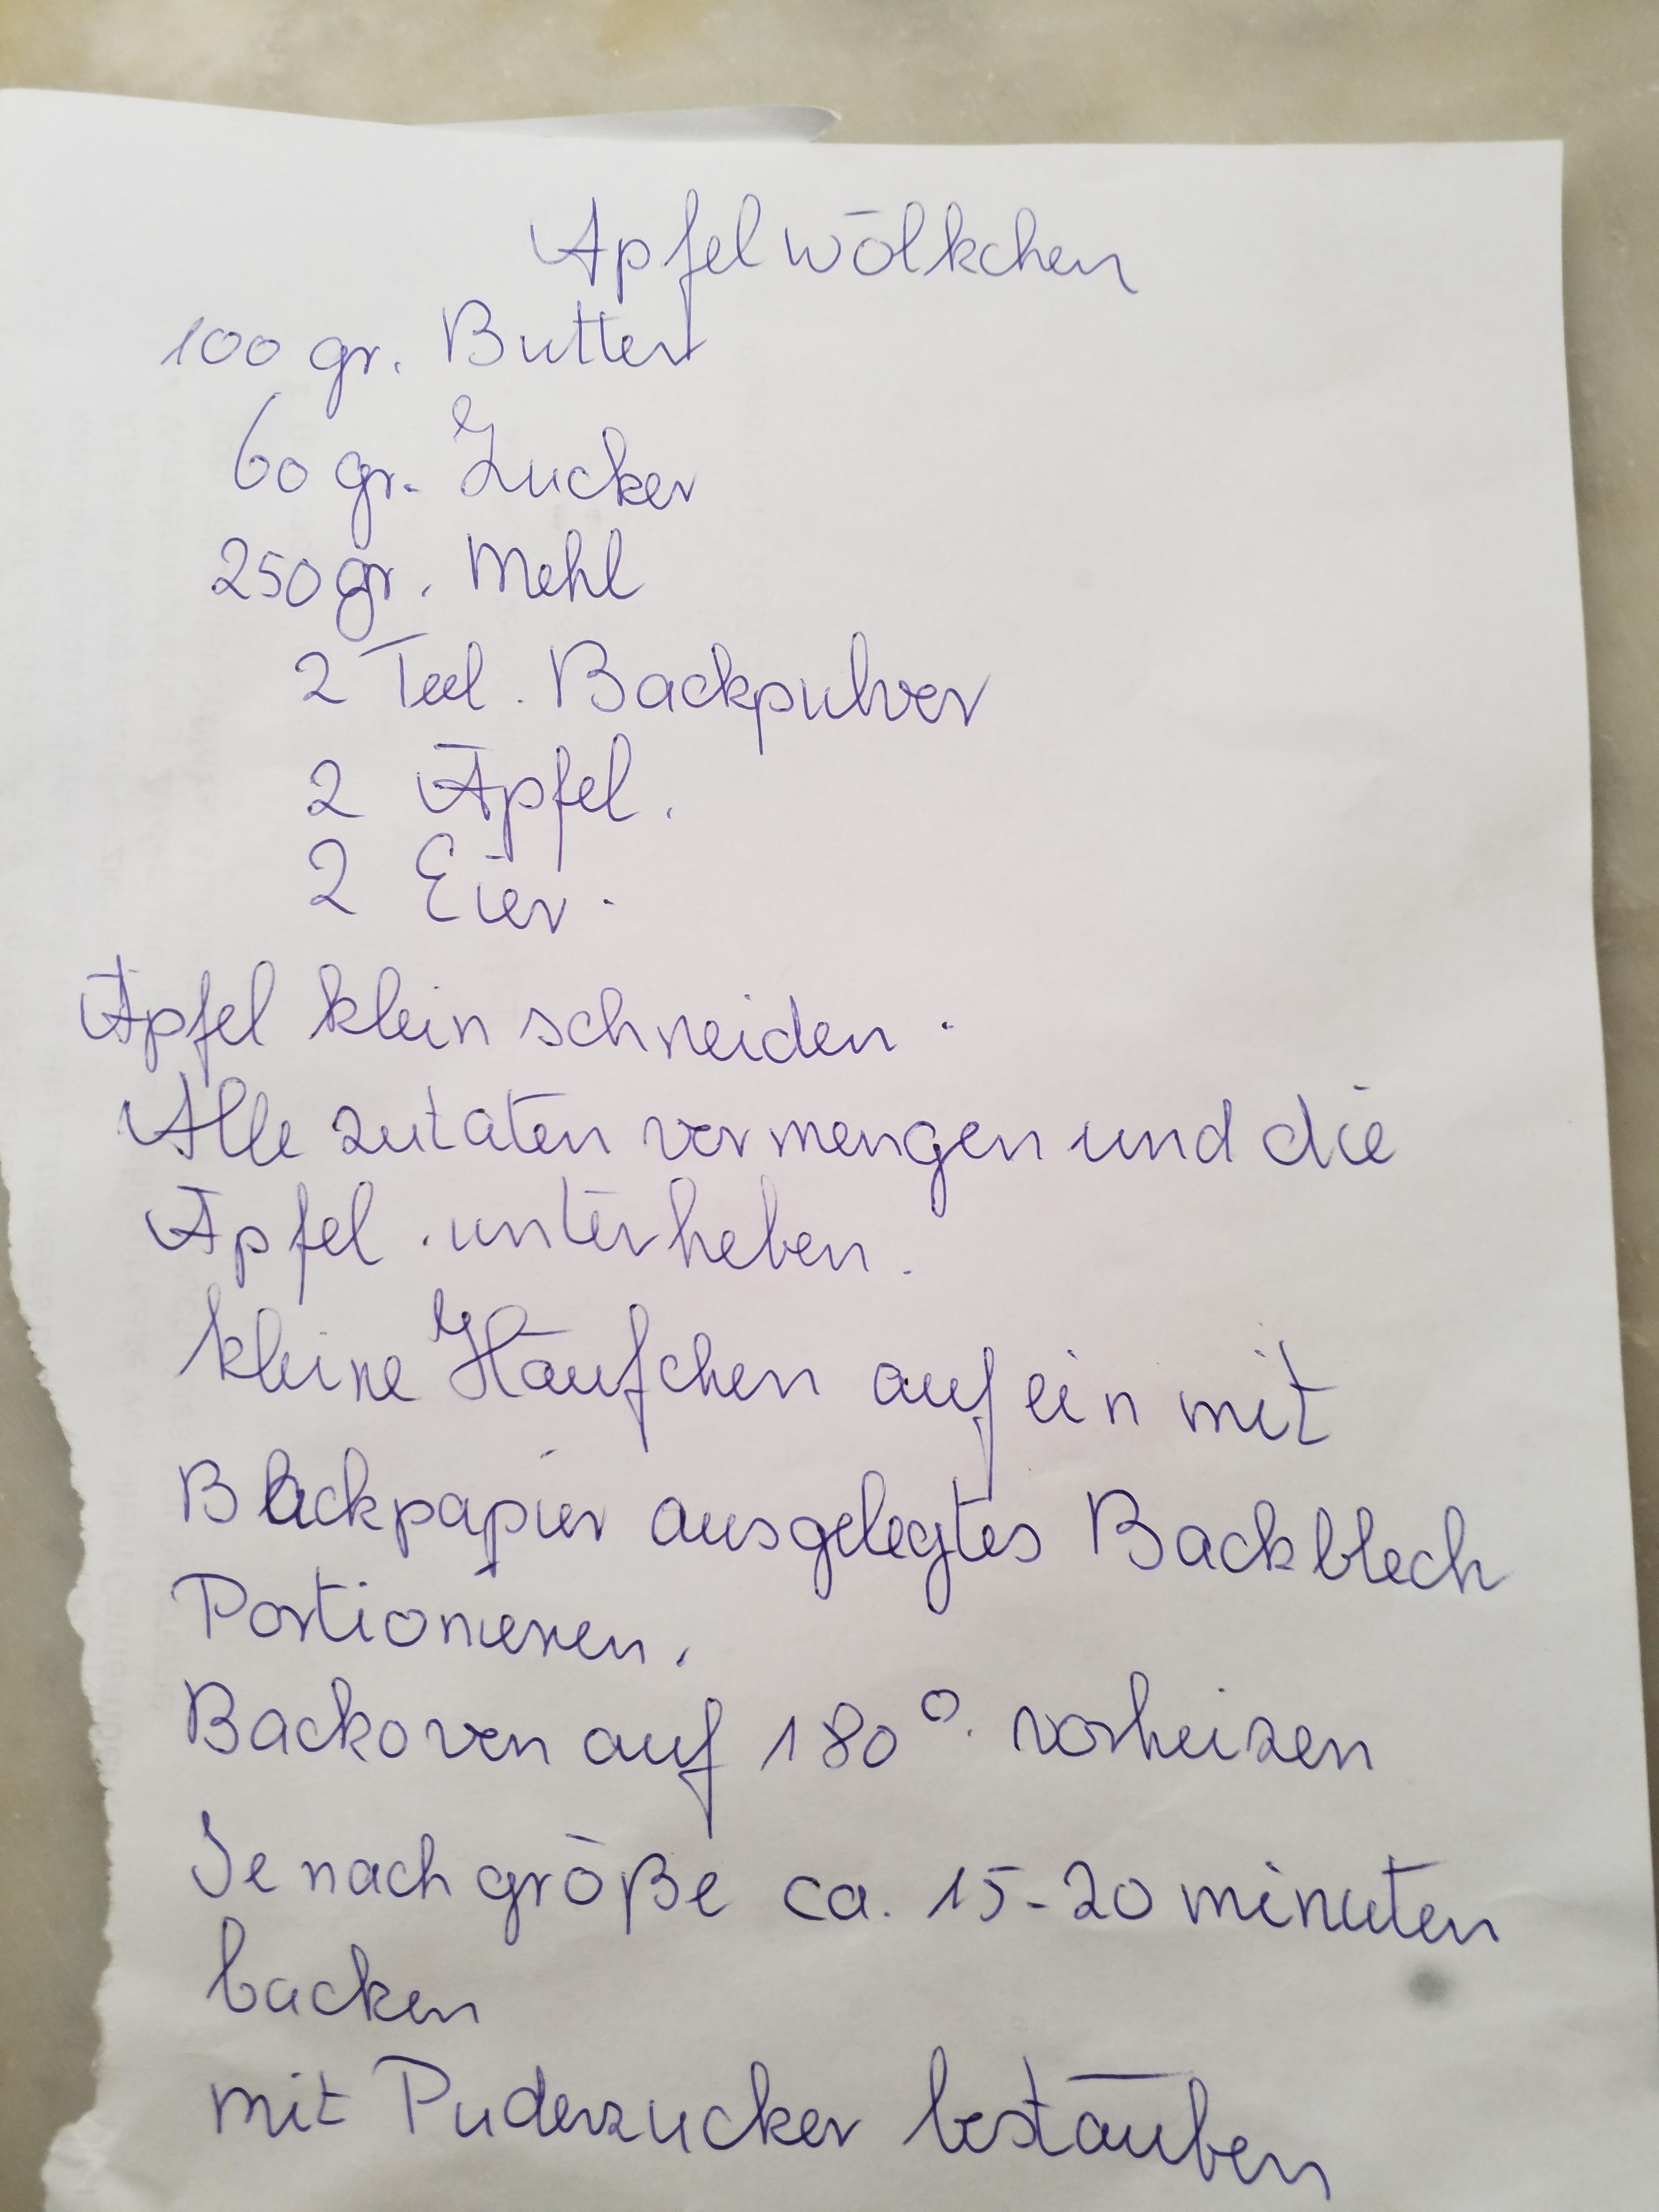 Apfelwölkchen
100 gr. Butter
60 gr. Zucker
250 gr. Mehl
2 Teel. Backpulver
2 Äpfel.
2 Eier.
Äpfel klein schneiden.
Alle zutaten vermengen und die
Äpfel unterheben.
kleine Häufchen auf ein mit
Backpapier ausgelegtes Backblech
Portionieren.
Backoven auf 180°. vorheizen
Je nach größe ca. 15-20 minuten
backen
mit Puderzucker bestäuben